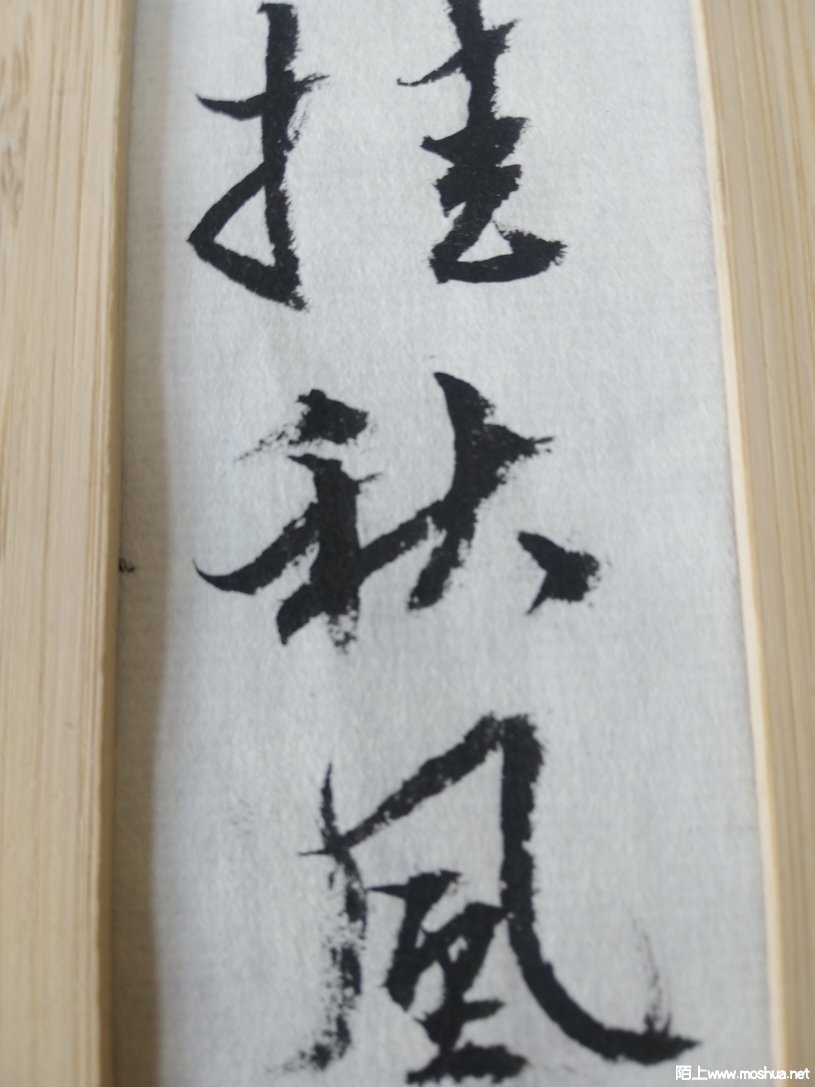 挂秋风
陌上www.moshua.net